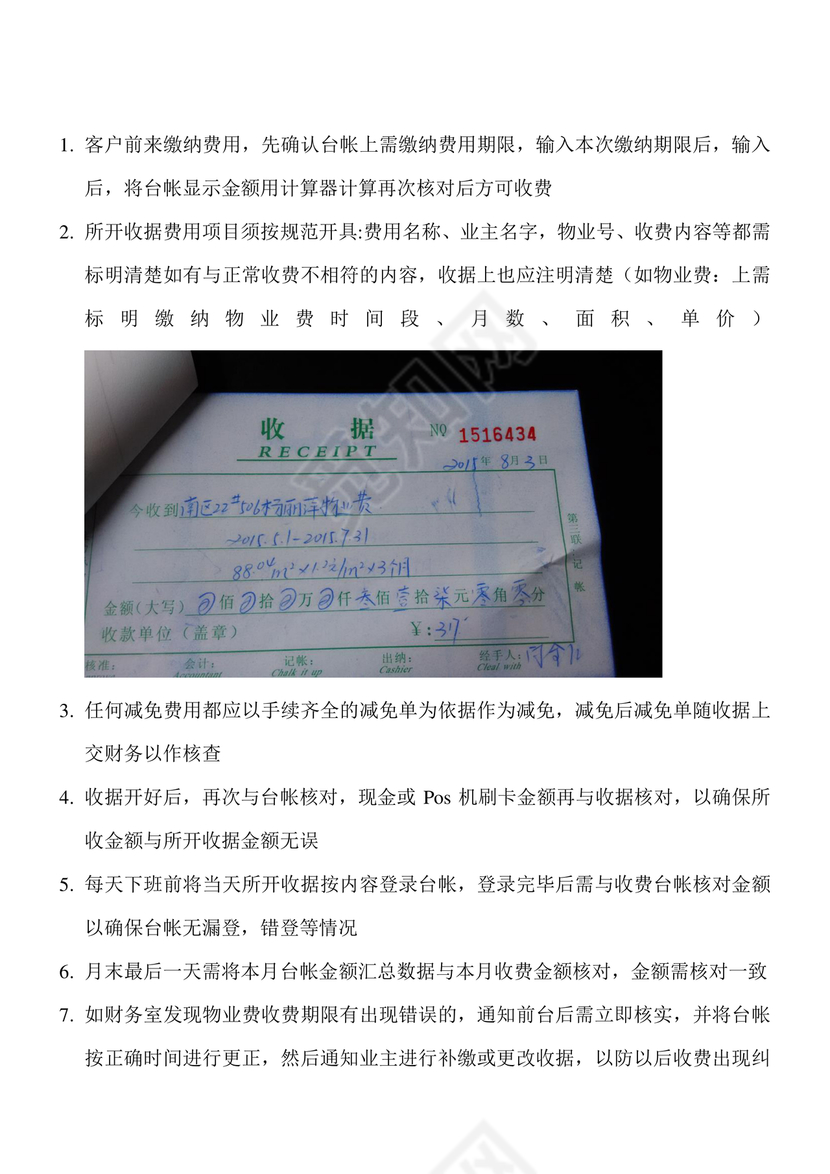 1. 客户前来缴纳费用，先确认台帐上需缴纳费用期限，输入本次缴纳期限后，输入
后，将台帐显示金额用计算器计算再次核对后方可收费
2. 所开收据费用项目须按规范开具:费用名称、业主名字，物业号、收费内容等都需
标明清楚如有与正常收费不相符的内容，收据上也应注明清楚（如物业费：上需
标明缴纳物业费时间段、月数、面积、单价）
收 据
NO 1516434
RECEIPT
2015年8月3日
今收到南区22#506杨丽萍物业费
2015.5.1-2015.7.31
88.04m²×1.2元/m²×3个月
金额(大写) 佰 拾 万 仟叁佰壹拾柒元零角零分
收款单位（盖章） ¥:317
第三联 记帐
核准: 会计: 记帐: 出纳: 经手人:
Accountant Chalk it up Cashier Cleal with
3. 任何减免费用都应以手续齐全的减免单为依据作为减免，减免后减免单随收据上
交财务以作核查
4. 收据开好后，再次与台帐核对，现金或 Pos 机刷卡金额再与收据核对，以确保所
收金额与所开收据金额无误
5. 每天下班前将当天所开收据按内容登录台帐，登录完毕后需与收费台帐核对金额
以确保台帐无漏登，错登等情况
6. 月末最后一天需将本月台帐金额汇总数据与本月收费金额核对，金额需核对一致
7. 如财务室发现物业费收费期限有出现错误的，通知前台后需立即核实，并将台帐
按正确时间进行更正，然后通知业主进行补缴或更改收据，以防以后收费出现纠
觅知网